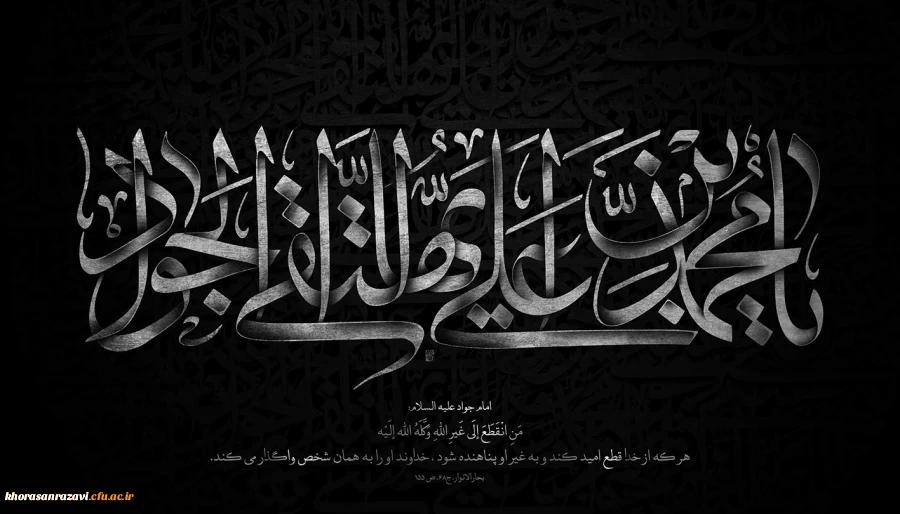 یا محمد بن علی ایها التقی الجواد
امام جواد علیه السلام:
مَنِ انْقَطَعَ إلَی غَیرِ اللهِ وَکَّلَهُ الله إلَیْه
هر که از خدا قطع امید کند و به غیر او پناهنده شود ، خداوند او را به همان شخص واگذار می کند.
بحارالانوار، ج۶۸، ص ۱۵۵
khorasanrazavi.cfu.ac.ir